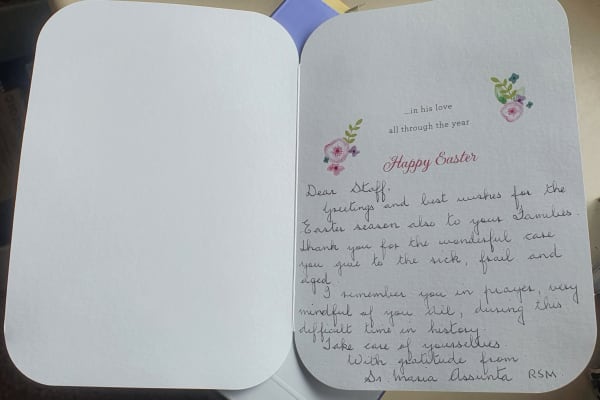 ...in his love
all through the year
Happy Easter
Dear Staff,
Greetings and best wishes for the
Easter season also to your Families.
Thank you for the wonderful care
you give to the sick, frail and
aged.
I remember you in prayer, very
mindful of you still, during this
difficult time in history.
Take care of yourselves.
With gratitude from
Sr. Maria Assunta RSM.